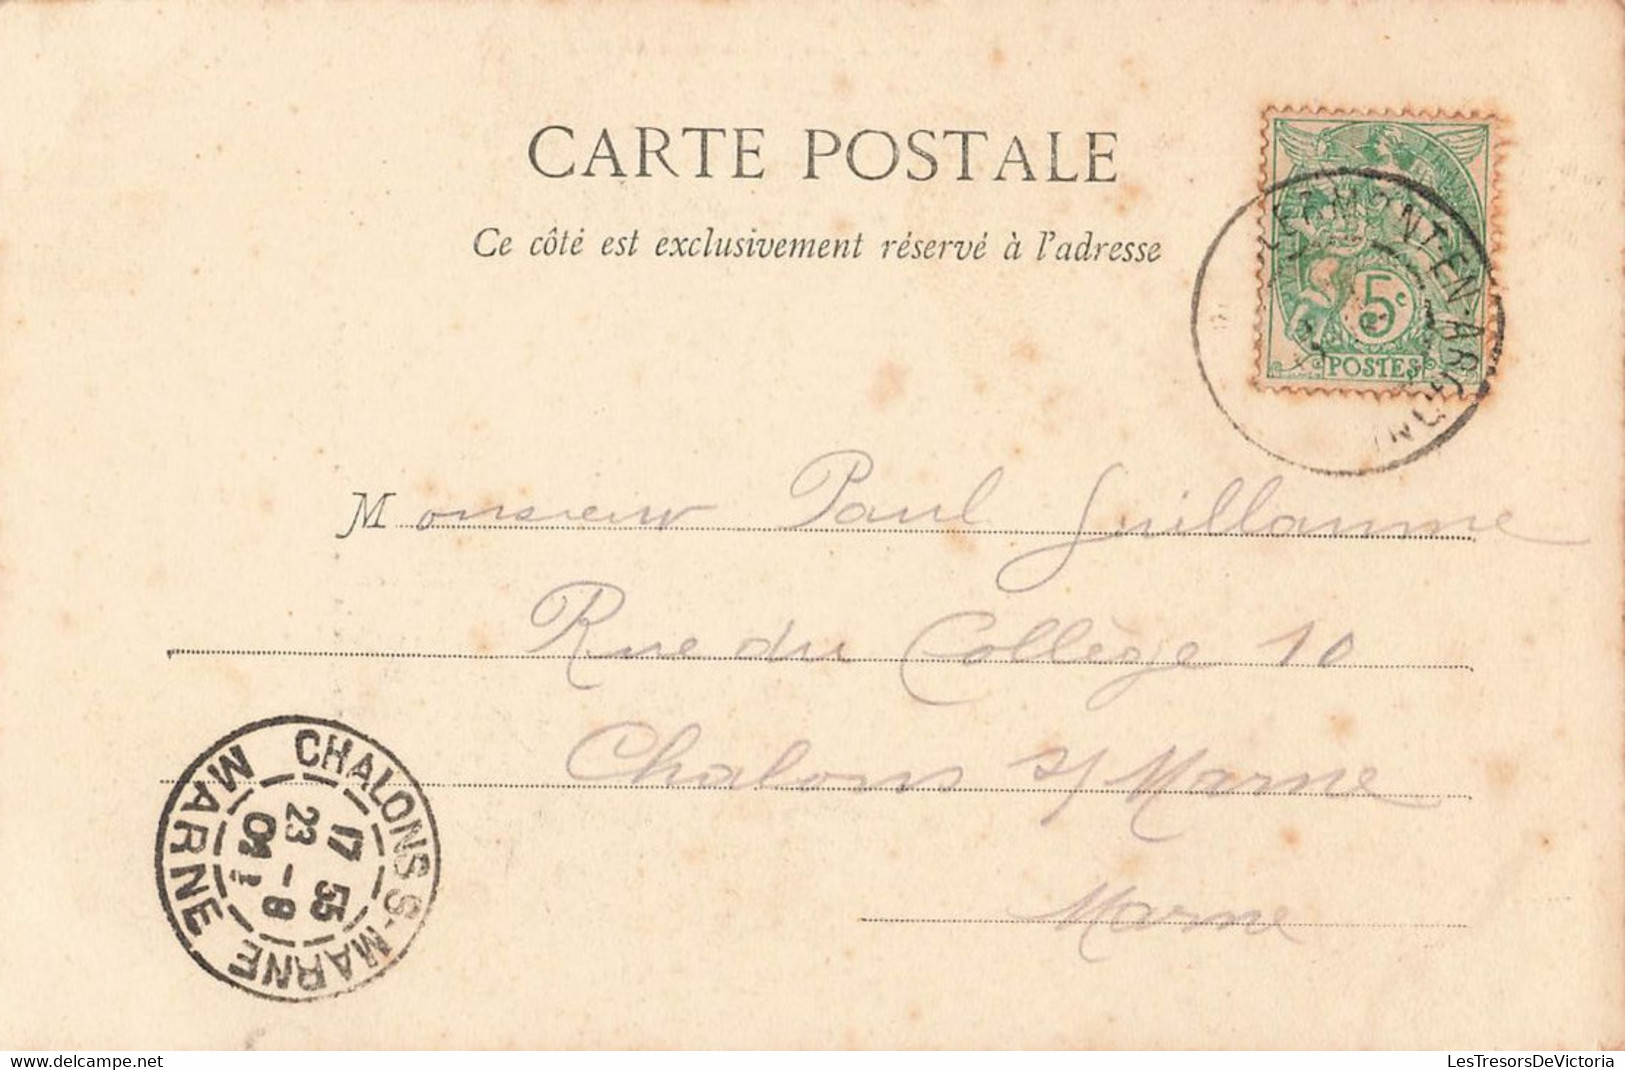 CARTE POSTALE
Ce côté est exclusivement réservé à l'adresse
5c
POSTES
Monsieur Paul Guillaume
Rue du Collège 10
Chalons s/ Marne
Marne
CHALONS S-MARNE
MARNE
17 55
23 - 8
04
https://www.delcampe.net
LesTresorsDeVictoria